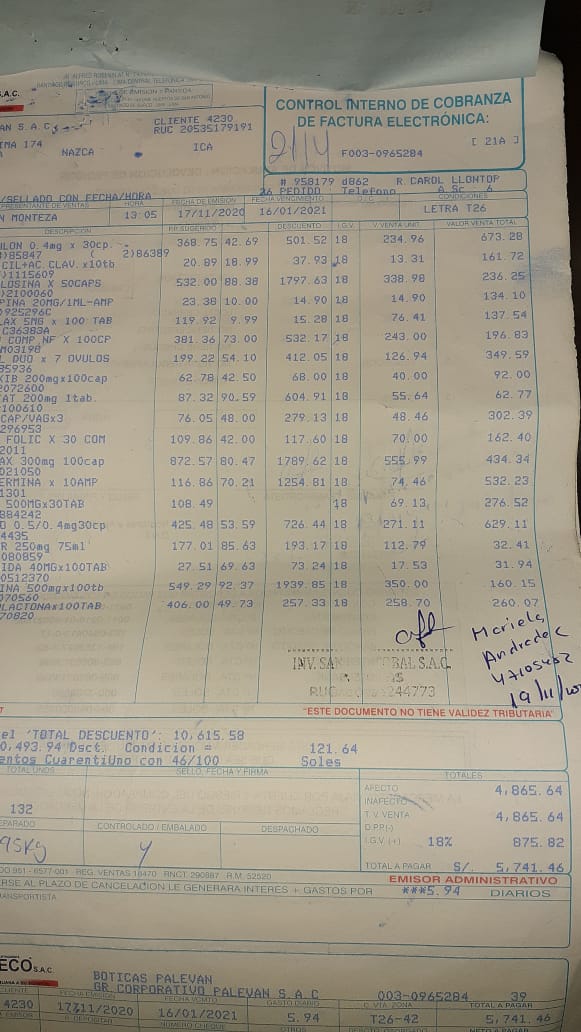 S.A.C.
CLIENTE 4230
AN S A C
RUC 20535179191
INA 174
NAZCA
ICA
CONTROL INTERNO DE COBRANZA
DE FACTURA ELECTRÓNICA:
21/4
F003-0965284
[ 21A ]
# 958179 d862 R. CAROL LLONTOP
/SELLADO CON FECHA/HORA
26 PEDIDO Telefono A Sc 6
REPRESENTANTE DE VENTAS HORA FECHA DE EMISION FECHA VENCIMIENTO O/C CONDICIONES
N MONTEZA 13:05 17/11/2020 16/01/2021 LETRA T26
DESCRIPCION PR.SUGERIDO % DESCUENTO I.G.V. V.VENTA UNIT. VALOR VENTA TOTAL
LON 0.4mg x 30cp. 368.75 42.69 501.52 18 234.96 673.28
)85847 ( 2)86389
CIL+AC.CLAV.x10tb 20.89 18.99 37.93 18 13.31 161.72
)1115609
LOSINA X 50CAPS 532.00 88.38 1797.63 18 338.98 236.25
)2100060
PINA 20MG/1ML-AMP 23.38 10.00 14.90 18 14.90 134.10
)925296C
LAX 5MG x 100 TAB 119.92 9.99 15.28 18 76.41 137.54
C36383A
COMP NF X 100CP 381.36 73.00 532.17 18 243.00 196.83
M03198
L DUO x 7 OVULOS 199.22 54.10 412.05 18 126.94 349.59
85936
XIB 200mgx100cap 62.78 42.50 68.00 18 40.00 92.00
2072600
TAT 200mg 1tab. 87.32 90.59 604.91 18 55.64 62.77
:100610
CAP/VAGx3 76.05 48.00 279.13 18 48.46 302.39
296953
FOLIC X 30 COM 109.86 42.00 117.60 18 70.00 162.40
2011
AX 300mg 100cap 872.57 80.47 1789.62 18 555.99 434.34
021050
ERMINA x 10AMP 116.86 70.21 1254.81 18 74.46 532.23
1301
500MGx30TAB 108.49 18 69.13 276.52
884242
D 0.5/0.4mg30cp 425.48 53.59 726.44 18 271.11 629.11
4435
R 250mg 75ml 177.01 85.63 193.17 18 112.79 32.41
080859
IDA 40MGx100TAB 27.51 69.63 73.24 18 17.53 31.94
00512370
INA 500mgx100tb 549.29 92.37 1939.85 18 350.00 160.15
070560
LACTONAx100TAB 406.00 49.73 257.33 18 258.70 260.07
70820
Mariela
Andrade C
47105452
INV. SAN BAL S.A.C.
RUC 244773
19/11/
"ESTE DOCUMENTO NO TIENE VALIDEZ TRIBUTARIA"
el 'TOTAL DESCUENTO': 10,615.58
0,493.94 Dsct. Condicion = 121.64
entos CuarentiUno con 46/100 Soles
TOTAL UNDS SELLO, FECHA Y FIRMA TOTALES
132
AFECTO 4,865.64
INAFECTO
T.V. VENTA 4,865.64
D.PP.(-)
I.G.V. (+) 18% 875.82
TOTAL A PAGAR S/. 5,741.46
PARADO CONTROLADO / EMBALADO DESPACHADO
95Kg 4
DO 951 - 6577-001 REG. VENTAS 18470 RNCT. 290887 R.M. 52520
EMISOR ADMINISTRATIVO
RSE AL PLAZO DE CANCELACION LE GENERARA INTERES + GASTOS POR ***5.94 DIARIOS
RANSPORTISTA
ECO S.A.C.
BOTICAS PALEVAN
GR.CORPORATIVO PALEVAN S A C 003-0965284 39
CLIENTE FECHA EMISION FECHA VCMTO GASTO DIARIO C. VTA. ZONA TOTAL A PAGAR
4230 17/11/2020 16/01/2021 5.94 T26-42 5,741.46
R. DEPOSITAR NUMERO CHEQUE OTROS